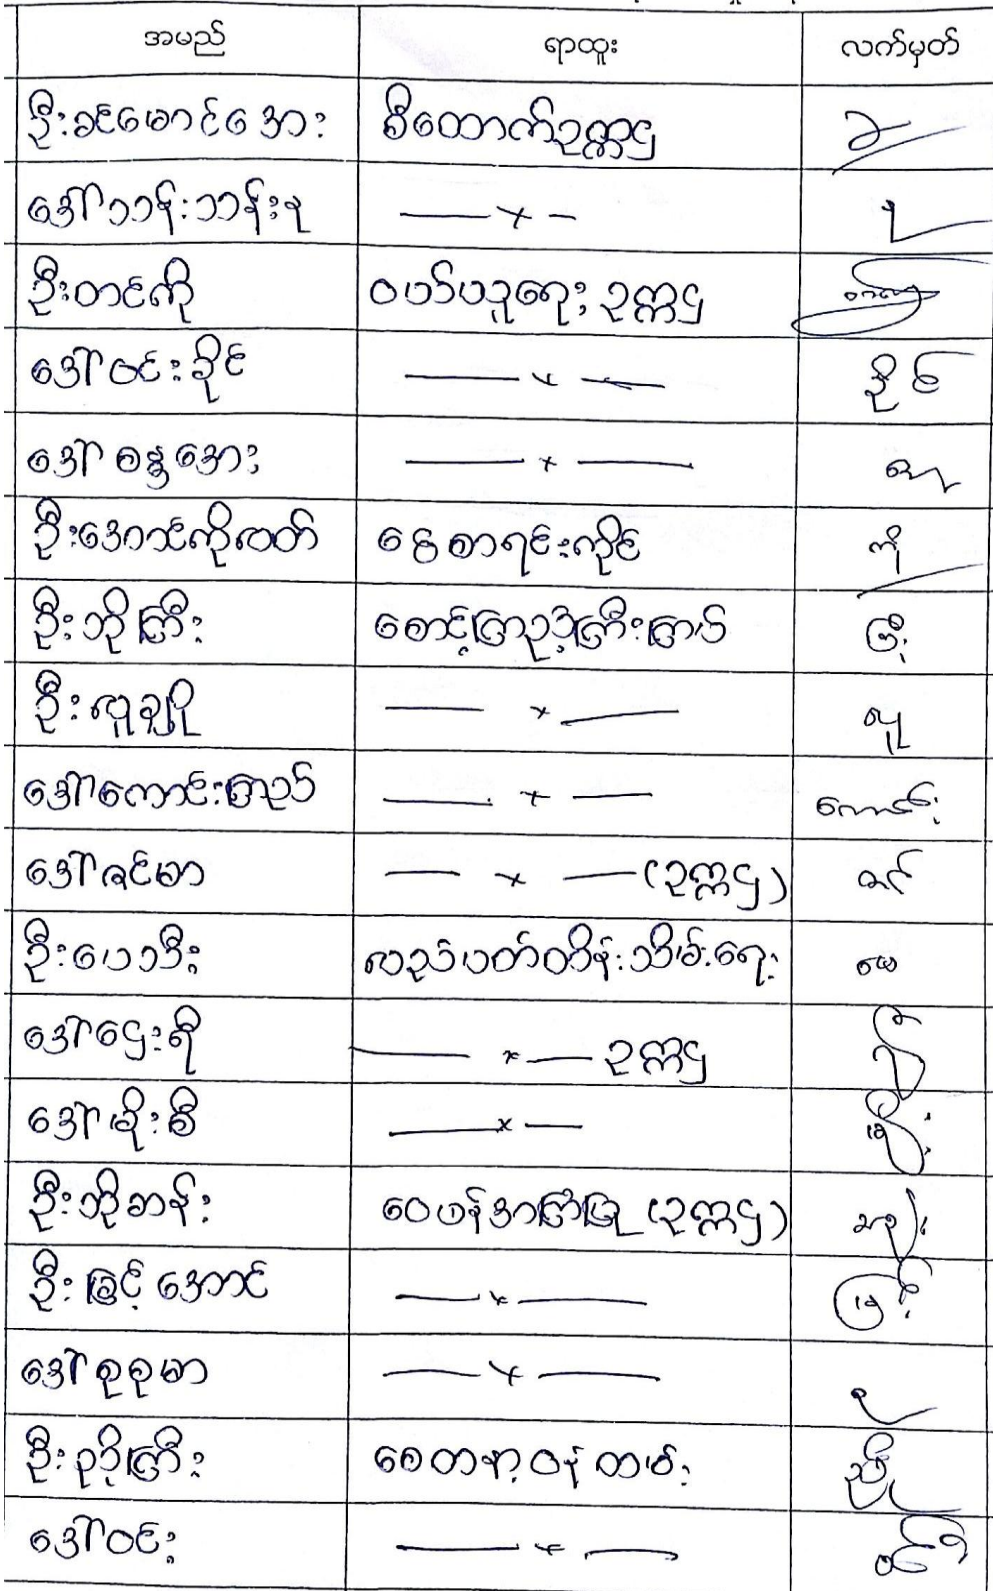 အမည် ရာထူး လက်မှတ်
ဦးခင်မောင်အေး စီထောက်ဥက္ကဌ
ဒေါ်သန်းသန်းနု —×—
ဦးတင်ကို ဝယ်ယူရေး ဥက္ကဌ
ဒေါ်ဝင်းခိုင် —×— ခိုင်
ဒေါ်စန္ဒအေး —×—
ဦးအောင်ကိုလတ် ငွေစာရင်းကိုင် ကို
ဦးဘိုကြီး စောင့်ကြည့်ကြီးကြပ်
ဦးလူချို —×— လူ
ဒေါ်ကောင်းကြည် —×— ကောင်း
ဒေါ်ခင်မာ —×— (ဥက္ကဌ) ခင်
ဦးပေသီး လည်ပတ်ထိန်းသိမ်းရေး ပေ
ဒေါ်ဌေးရီ —×— ဥက္ကဌ
ဒေါ်မိုးစီ —×— မိုး
ဦးဘိုသန်း ဝေဖန်အကြံပြု (ဥက္ကဌ)
ဦးမြင့်အောင် —×— မြင့်
ဒေါ်စုစုမာ —×— စု
ဦးညိုကြီး စေတနာ့ဝန်ထမ်း ညို
ဒေါ်ဝင်း —×— ဝင်း